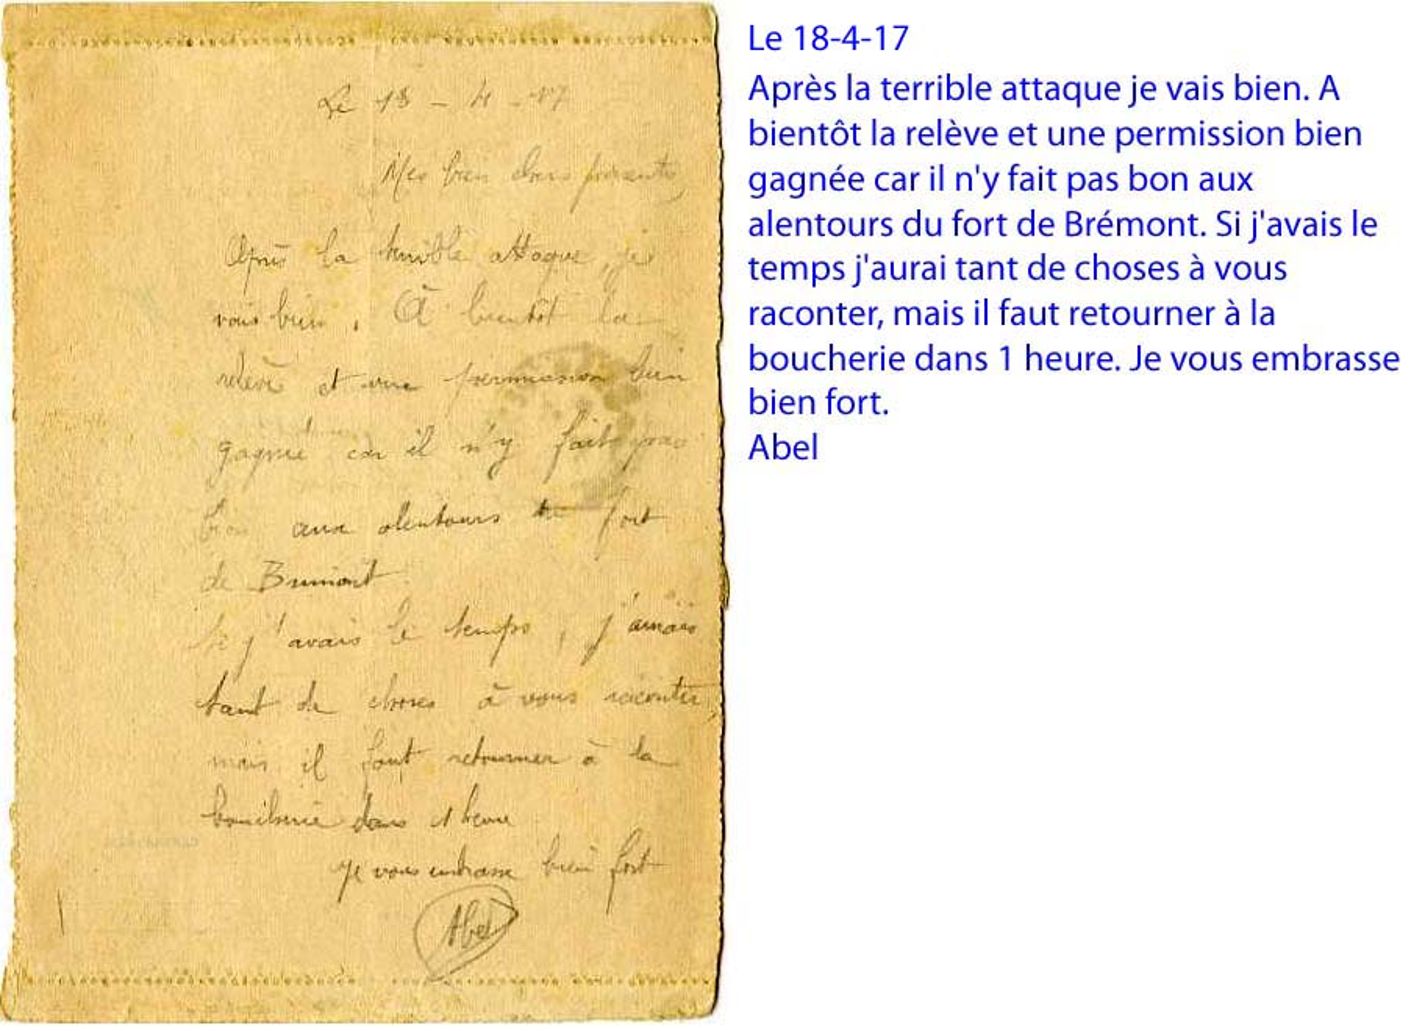 Le 18 - 4 - 17
Mes bien chers parents,
Après la terrible attaque, je
vais bien. A bientôt la
relève et une permission bien
gagnée car il n'y fait pas
bon aux alentours du fort
de Brimont
Si j'avais le temps, j'aurais
tant de choses à vous raconter,
mais il faut retourner à la
boucherie dans 1 heure
Je vous embrasse bien fort
Abel
Le 18-4-17
Après la terrible attaque je vais bien. A
bientôt la relève et une permission bien
gagnée car il n'y fait pas bon aux
alentours du fort de Brémont. Si j'avais le
temps j'aurai tant de choses à vous
raconter, mais il faut retourner à la
boucherie dans 1 heure. Je vous embrasse
bien fort.
Abel